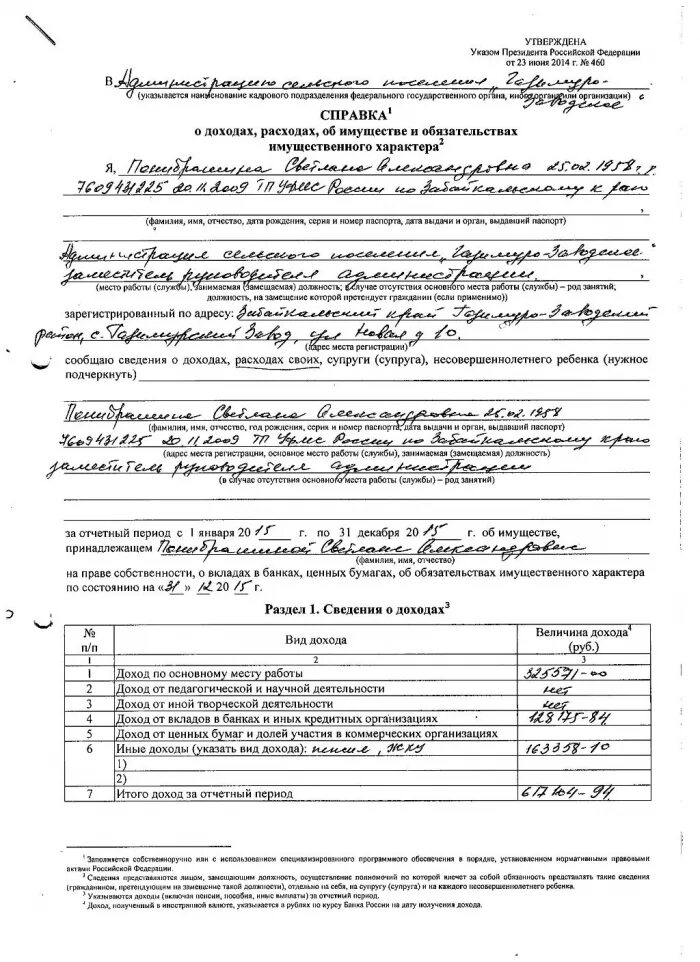 УТВЕРЖДЕНА
Указом Президента Российской Федерации
от 23 июня 2014 г. № 460
В Администрацию сельского поселения „Газимуро-
(указывается наименование кадрового подразделения федерального государственного органа, иного органа или организации)
Заводское
СПРАВКА¹
о доходах, расходах, об имуществе и обязательствах
имущественного характера²
Я, Светлана Александровна 25.02.1958 г.р.
7609431225 20.11.2009 ТП УФМС России по Забайкальскому краю
,
(фамилия, имя, отчество, дата рождения, серия и номер паспорта, дата выдачи и орган, выдавший паспорт)
Администрация сельского поселения „Газимуро-Заводское"
заместитель руководителя администрации ,
(место работы (службы), занимаемая (замещаемая) должность; в случае отсутствия основного места работы (службы) – род занятий;
должность, на замещение которой претендует гражданин (если применимо))
зарегистрированный по адресу: Забайкальский край Газимуро-Заводский
район, с. Газимурский Завод, ул Новая д 10.
(адрес места регистрации)
сообщаю сведения о доходах, расходах своих, супруги (супруга), несовершеннолетнего ребенка (нужное
подчеркнуть)
Светлана Александровна 25.02.1958
(фамилия, имя, отчество, год рождения, серия и номер паспорта, дата выдачи и орган, выдавший паспорт)
7609431225 20.11.2009 ТП УФМС России по Забайкальскому краю
(адрес места регистрации, основное место работы (службы), занимаемая (замещаемая) должность)
заместитель руководителя администрации
(в случае отсутствия основного места работы (службы) – род занятий)
за отчетный период с 1 января 2015 г. по 31 декабря 2015 г. об имуществе,
принадлежащем Светлане Александровне
(фамилия, имя, отчество)
на праве собственности, о вкладах в банках, ценных бумагах, об обязательствах имущественного характера
по состоянию на «31» 12 2015 г.
Раздел 1. Сведения о доходах³
№ п/п Вид дохода Величина дохода⁴ (руб.)
1 2 3
1 Доход по основному месту работы 325571-00
2 Доход от педагогической и научной деятельности нет
3 Доход от иной творческой деятельности нет
4 Доход от вкладов в банках и иных кредитных организациях 128175-84
5 Доход от ценных бумаг и долей участия в коммерческих организациях
6 Иные доходы (указать вид дохода): пенсия, ЖКУ 163358-10
1)
2)
7 Итого доход за отчетный период 617104-94
¹ Заполняется собственноручно или с использованием специализированного программного обеспечения в порядке, установленном нормативными правовыми
актами Российской Федерации.
² Сведения представляются лицом, замещающим должность, осуществление полномочий по которой влечет за собой обязанность представлять такие сведения
(гражданином, претендующим на замещение такой должности), отдельно на себя, на супругу (супруга) и на каждого несовершеннолетнего ребенка.
³ Указываются доходы (включая пенсии, пособия, иные выплаты) за отчетный период.
⁴ Доход, полученный в иностранной валюте, указывается в рублях по курсу Банка России на дату получения дохода.